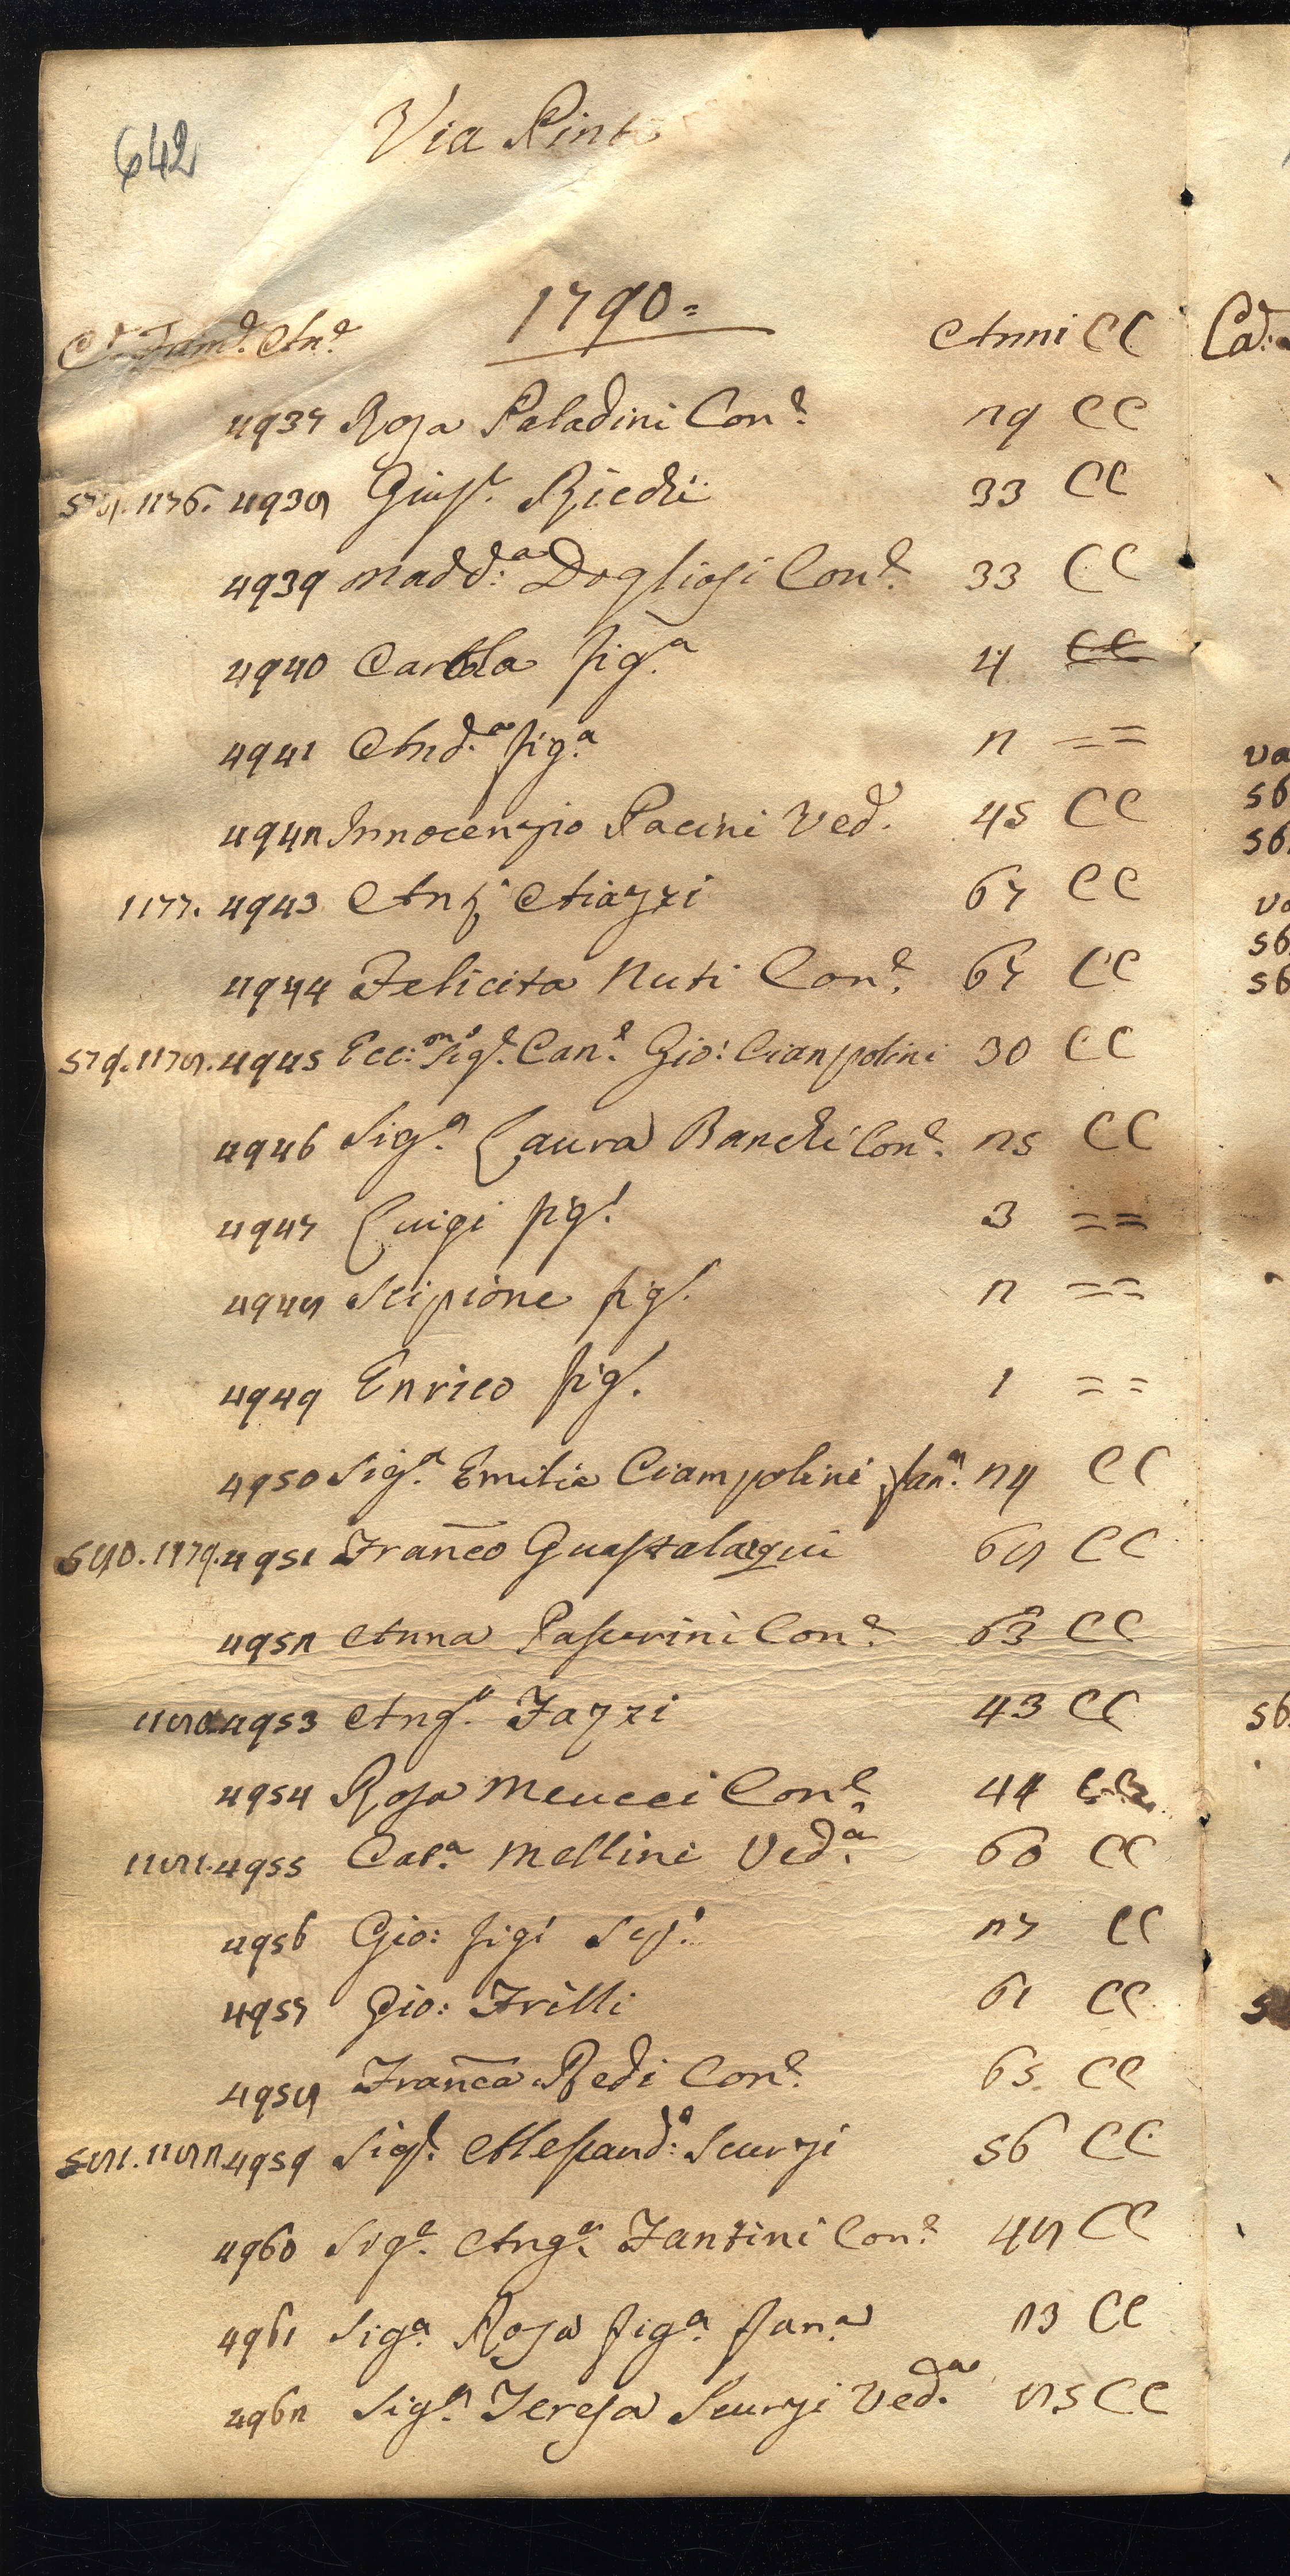 642
Via Pint
1790=
C.e Fam.e An.e Anni CC
4937 Rosa Paladini Con.e 29 CC
578. 1176. 4938 Gius.e Riedi 33 CC
4939 Madd:a Dogliosi Con.e 33 CC
4940 Carola fig.a 4 CC
4941 And.a fig.a 2 ==
4942 Innocenzio Pacini Ved. 45 CC
1177. 4943 Ant.o Aiazzi 67 CC
4944 Felicita Nuti Con.e 67 CC
579. 1178. 4945 Ecc:mo Sig.e Can.e Gio: Cianpolini 30 CC
4946 Sig.a Laura Banchi Con.e 25 CC
4947 Luigi fig.o 3 ==
4948 Scipione fig. 2 ==
4949 Enrico fig. 1 ==
4950 Sig.a Emilia Ciampolini fan.a 24 CC
580. 1179. 4951 Franco Guastalargui 68 CC
4952 Anna Passerini Con.e 63 CC
1180. 4953 Ang.o Fazzi 43 CC
4954 Rosa Meucci Con.e 44 CC
1181. 4955 Cat.a Mellini Ved.a 60 CC
4956 Gio: fig.o Sep.o 27 CC
4957 Gio: Frilli 61 CC
4958 Franca Redi Con.e 65 CC
581. 1182 4959 Sig.e Alessand:o Scurzi 56 CC
4960 Sig.a Ang.a Fantini Con.e 48 CC
4961 Sig.a Rosa fig.a fan.a 23 CC
4962 Sig.a Teresa Scurzi Ved.a 85 CC